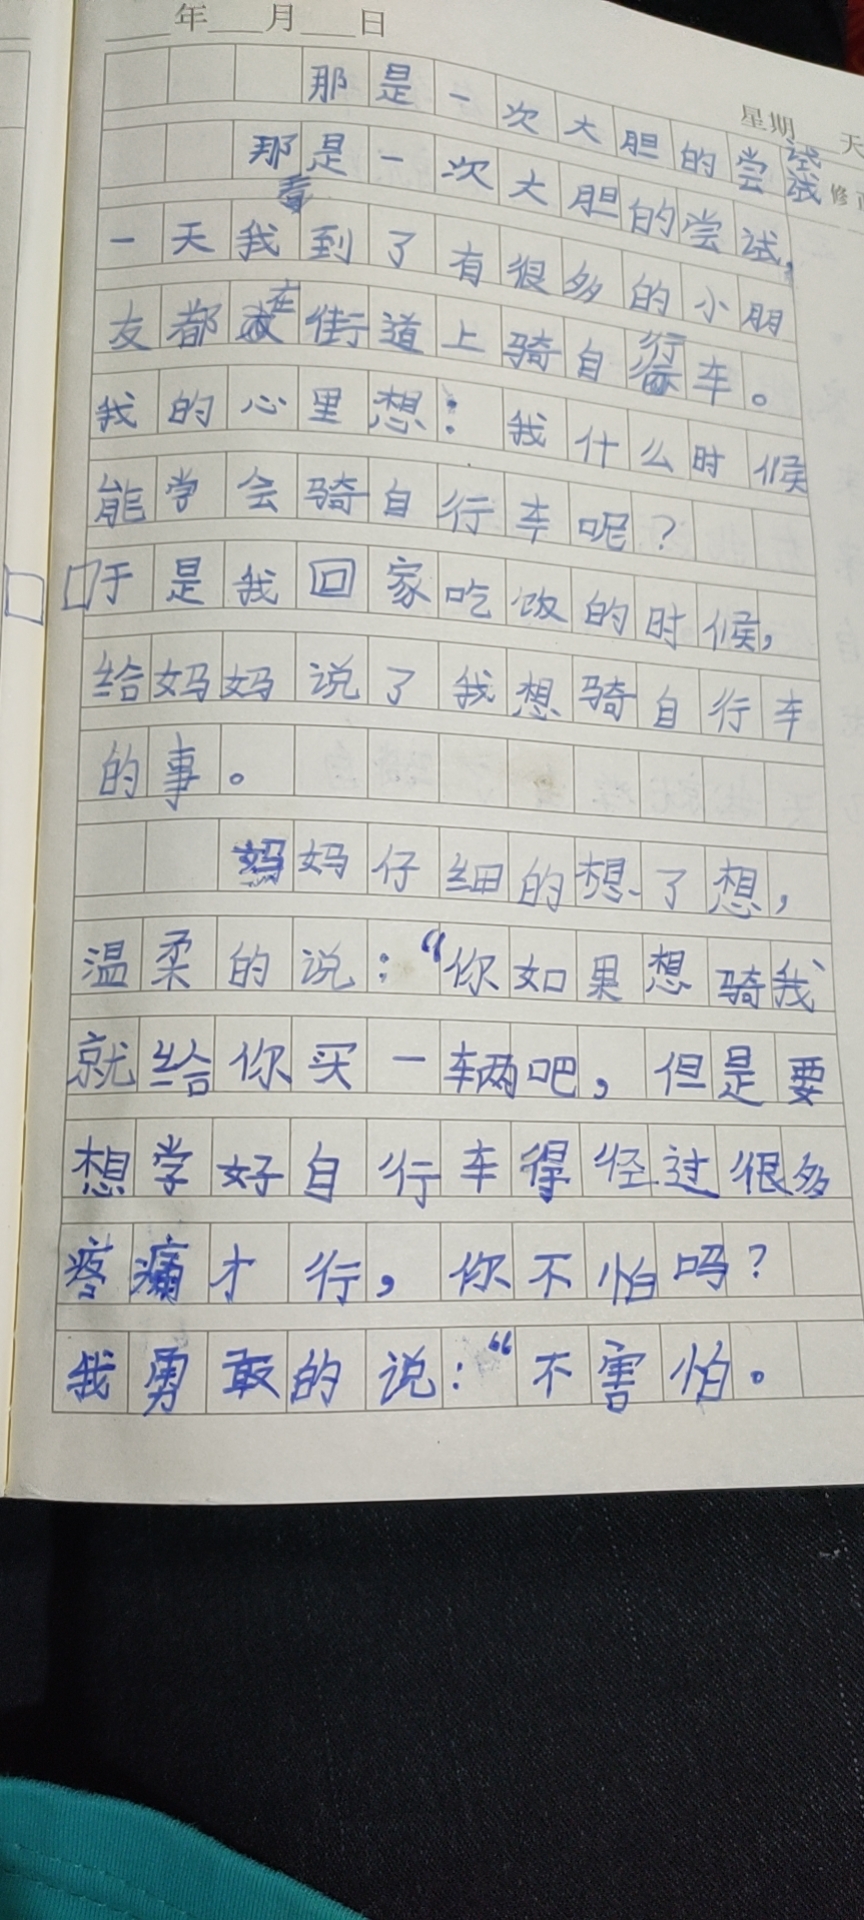 年 月 日
星期 天
那是一次大胆的尝试
修正
那是一次大胆的尝试,
一天我看到了有很多的小朋
友都在街道上骑自行车。
我的心里想:我什么时候
能学会骑自行车呢?
于是我回家吃饭的时候,
给妈妈说了我想骑自行车
的事。
妈妈仔细的想了想,
温柔的说:“你如果想骑我
就给你买一辆吧,但是要
想学好自行车得经过很多
疼痛才行,你不怕吗?
我勇敢的说:“不害怕。